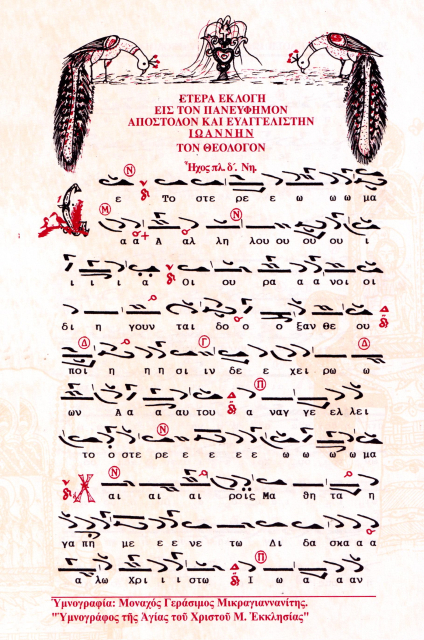 ΕΤΕΡΑ ΕΚΛΟΓΗ
ΕΙΣ ΤΟΝ ΠΑΝΕΥΦΗΜΟΝ
ΑΠΟΣΤΟΛΟΝ ΚΑΙ ΕΥΑΓΓΕΛΙΣΤΗΝ
ΙΩΑΝΝΗΝ
ΤΟΝ ΘΕΟΛΟΓΟΝ
Ἦχος πλ. δ΄. Νη.
ε Το στε ρε ε ω ω ω μα
α α Α αλ λη λου ου ου ου ι
ι ι ι α Οι ου ρα α α νοι οι
δι η γουν ται δο ο ο ξαν θε ου
ποι η η η σι ιν δε ε χει ρω ω
ων Α α α αυ του α ναγ γε ελ λει
το ο στε ρε ε ε ε ω ω ω ω μα
Χ αι αι αι ροις Μα θη τα η
γα πη με ε ε νε τω Δι δα σκα α α
α λω Χρι ι ι στω Ι ω α α αν
Ὑμνογραφία: Μοναχός Γεράσιμος Μικραγιαννανίτης.
"Ὑμνογράφος τῆς Ἁγίας τοῦ Χριστοῦ Μ. Ἐκκλησίας"